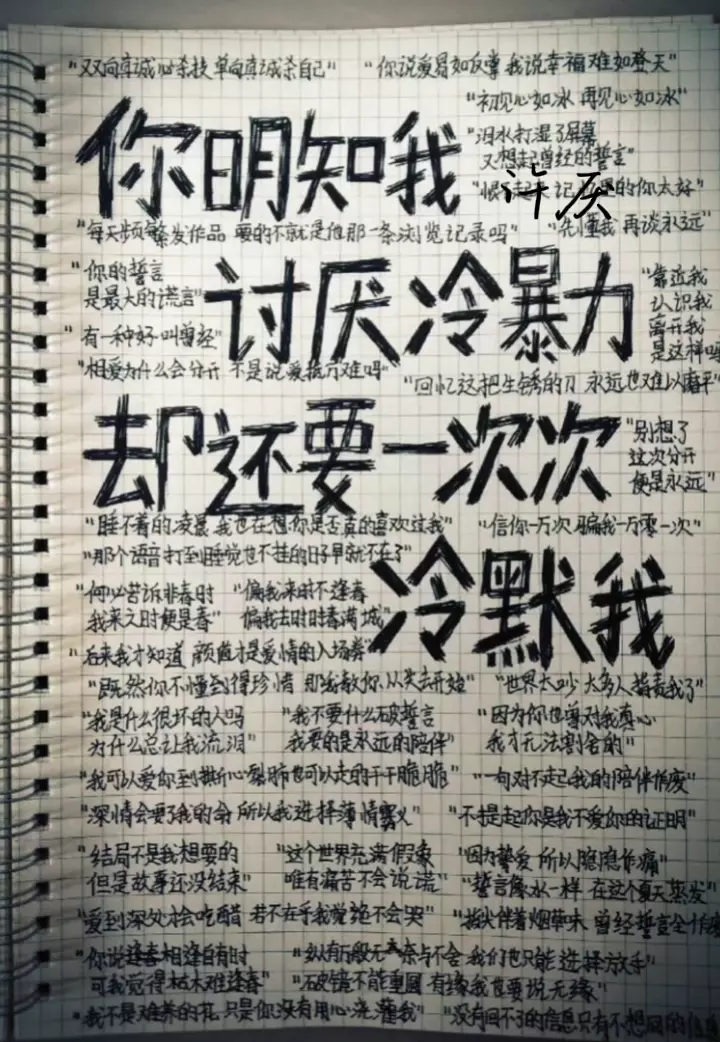 "双向真诚必杀技 单向真诚杀自己" "你说爱易如反掌 我说幸福难如登天"
"初见心如冰 再见心如冰"
你明知我
"泪水打湿了屏幕
又想起曾经的誓言"
许厌
"每天频繁发作品 要的不就是他那一条浏览记录吗" "先懂我 再谈永远"
"你的誓言
是最大的谎言"
讨厌冷暴力
"靠近我
认识我
离开我
是这样吗
"有一种好 叫曾经"
"相爱为什么会分开 不是说爱抵万难吗"
"回忆这把生锈的刀 永远也难以磨平"
却还要一次次
"别想了
这次分开
便是永远"
"睡不着的凌晨 我也在想你是否真的喜欢过我" "信你一万次 骗我一万零一次"
"那个语音打到睡觉也不挂的日子早就不在了"
冷默我
"何必苦诉非春时 "偏我来时不逢春
我来之时便是春" 偏我去时时春满城"
"后来我才知道 颜值才是爱情的入场券"
"既然你不懂到得珍惜 那我教你从失去开始" "世界太吵 太多人指责我了"
"我是什么很坏的人吗 "我不要什么破誓言 "因为你也曾对我真心
为什么总让我流泪" 我要的是永远的陪伴" 我才无法割舍的"
"我可以爱你到撕心裂肺也可以走的干干脆脆" "一句对不起我的陪伴作废"
"深情会要了我的命 所以我选择薄情寡义" "不提起你是我不爱你的证明"
"结局不是我想要的 "这个世界充满假象 "因为挚爱 所以隐隐作痛"
但是故事还没结束" 唯有痛苦不会说谎" "誓言像水一样 在这个夏天蒸发"
"爱到深处才会吃醋 若不在乎我觉绝不会哭" "指尖伴着烟草味 曾经誓言全作废
"你说逢春相逢自有时 "纵有万般无奈与不舍 我们也只能选择放手"
可我觉得枯木难逢春" "破镜不能重圆 有缘我也要说无缘"
"我不是难养的花 只是你没有用心浇灌我" "没有回不了的信息只有不想回的信息